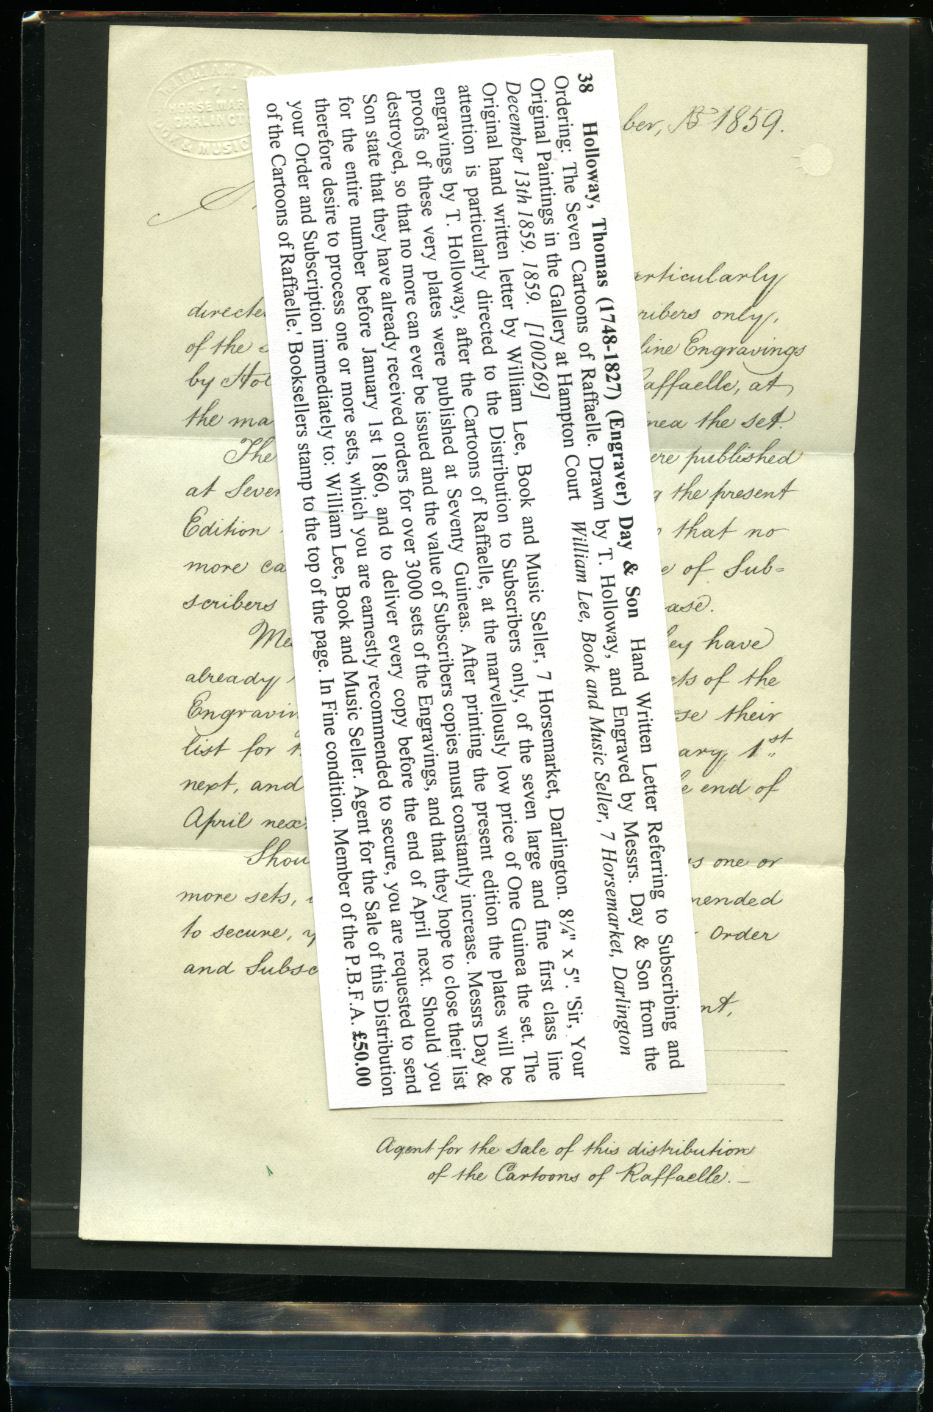 WILLIAM
7
HORSE MAR
DARLINGTO
& MUSIC
ber, 13 1859.
articularly
directe ribers only,
of the s line Engravings
by Hol affaelle, at
the ma nea the set.
The ere published
at Seven g the present
Edition that no
more ca e of Sub=
scribers ase.
Mes ey have
already ets of the
Engravin se their
list for t ary 1st
next, and e end of
April nex
Shou s one or
more sets, mended
to secure, y Order
and Subsc
nt,
Agent for the Sale of this distribution
of the Cartoons of Raffaelle. _
38 Holloway, Thomas (1748-1827) (Engraver) Day & Son Hand Written Letter Referring to Subscribing and
Ordering: The Seven Cartoons of Raffaelle. Drawn by T. Holloway, and Engraved by Messrs. Day & Son from the
Original Paintings in the Gallery at Hampton Court William Lee, Book and Music Seller, 7 Horsemarket, Darlington
December 13th 1859. 1859. [100269]
Original hand written letter by William Lee, Book and Music Seller, 7 Horsemarket, Darlington. 8¼" x 5". 'Sir, Your
attention is particularly directed to the Distribution to Subscribers only, of the seven large and fine first class line
engravings by T. Holloway, after the Cartoons of Raffaelle, at the marvellously low price of One Guinea the set. The
proofs of these very plates were published at Seventy Guineas. After printing the present edition the plates will be
destroyed, so that no more can ever be issued and the value of Subscribers copies must constantly increase. Messrs Day &
Son state that they have already received orders for over 3000 sets of the Engravings, and that they hope to close their list
for the entire number before January 1st 1860, and to deliver every copy before the end of April next. Should you
therefore desire to process one or more sets, which you are earnestly recommended to secure, you are requested to send
your Order and Subscription immediately to: William Lee, Book and Music Seller. Agent for the Sale of this Distribution
of the Cartoons of Raffaelle.' Booksellers stamp to the top of the page. In Fine condition. Member of the P.B.F.A. £50.00